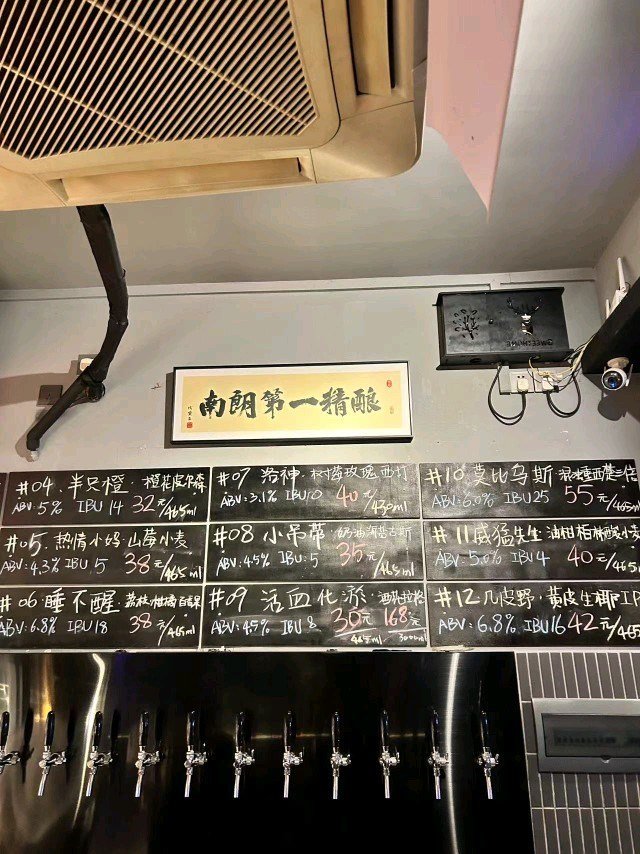 南朗第一精酿
#04. 半只橙·橙花皮尔森
ABV: 5% IBU 14 32元/465ml
#05. 热情小妈·山莓小麦
ABV: 4.3% IBU, 5 38元/465ml
#06. 睡不醒·荔枝
ABV: 6.8% IBU18 38元/465ml
#07 洛神·玫瑰西打
ABV: 3.1% IBU: 0 40元/430ml
#08 小吊带·奶油
ABV: 4.5% IBU: 5 35元/465ml
#09 活血化淤·西斯拉格
ABV: 4.5% IBU 8 30元/465ml 168元/3000ml
#10 莫比乌斯·西楚三倍
ABV: 6.0% IBU 25 55元/465ml
#11 威猛先生·油柑柏林酸小麦
ABV: 5.0% IBU 4 40元/465
#12 几皮野·黄皮生椰IP
ABV: 6.8% IBU16 42元/465